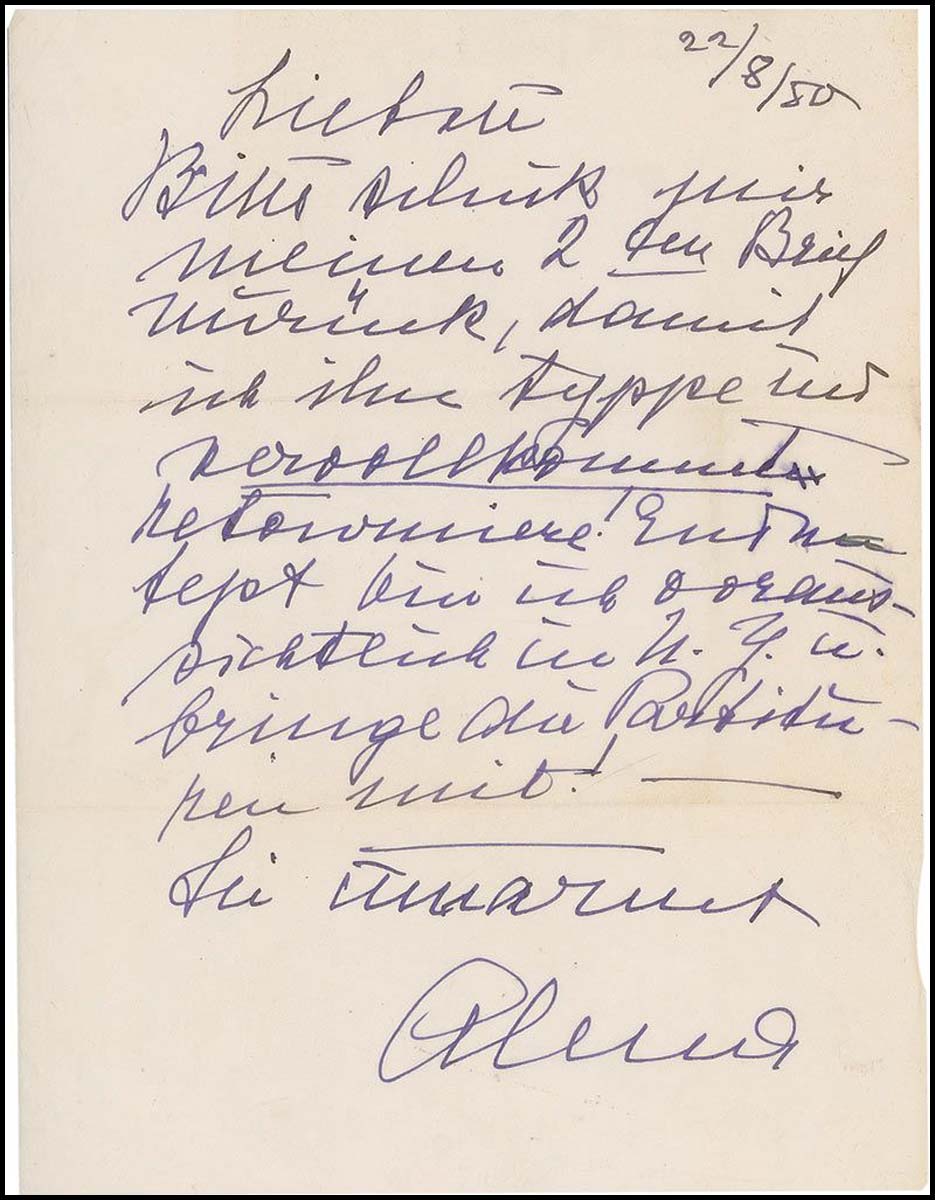 22/8/50
Liebste
Bitte schick mir
meinen 2 ten Brief
zurück, damit
ich ihn typpe und
vervollkommt
retourniere! Ende
Sept bin ich voraus-
sichtlich in N. Y. u.
bringe die Partitu-
ren mit! —
Sie umarmt
Alma